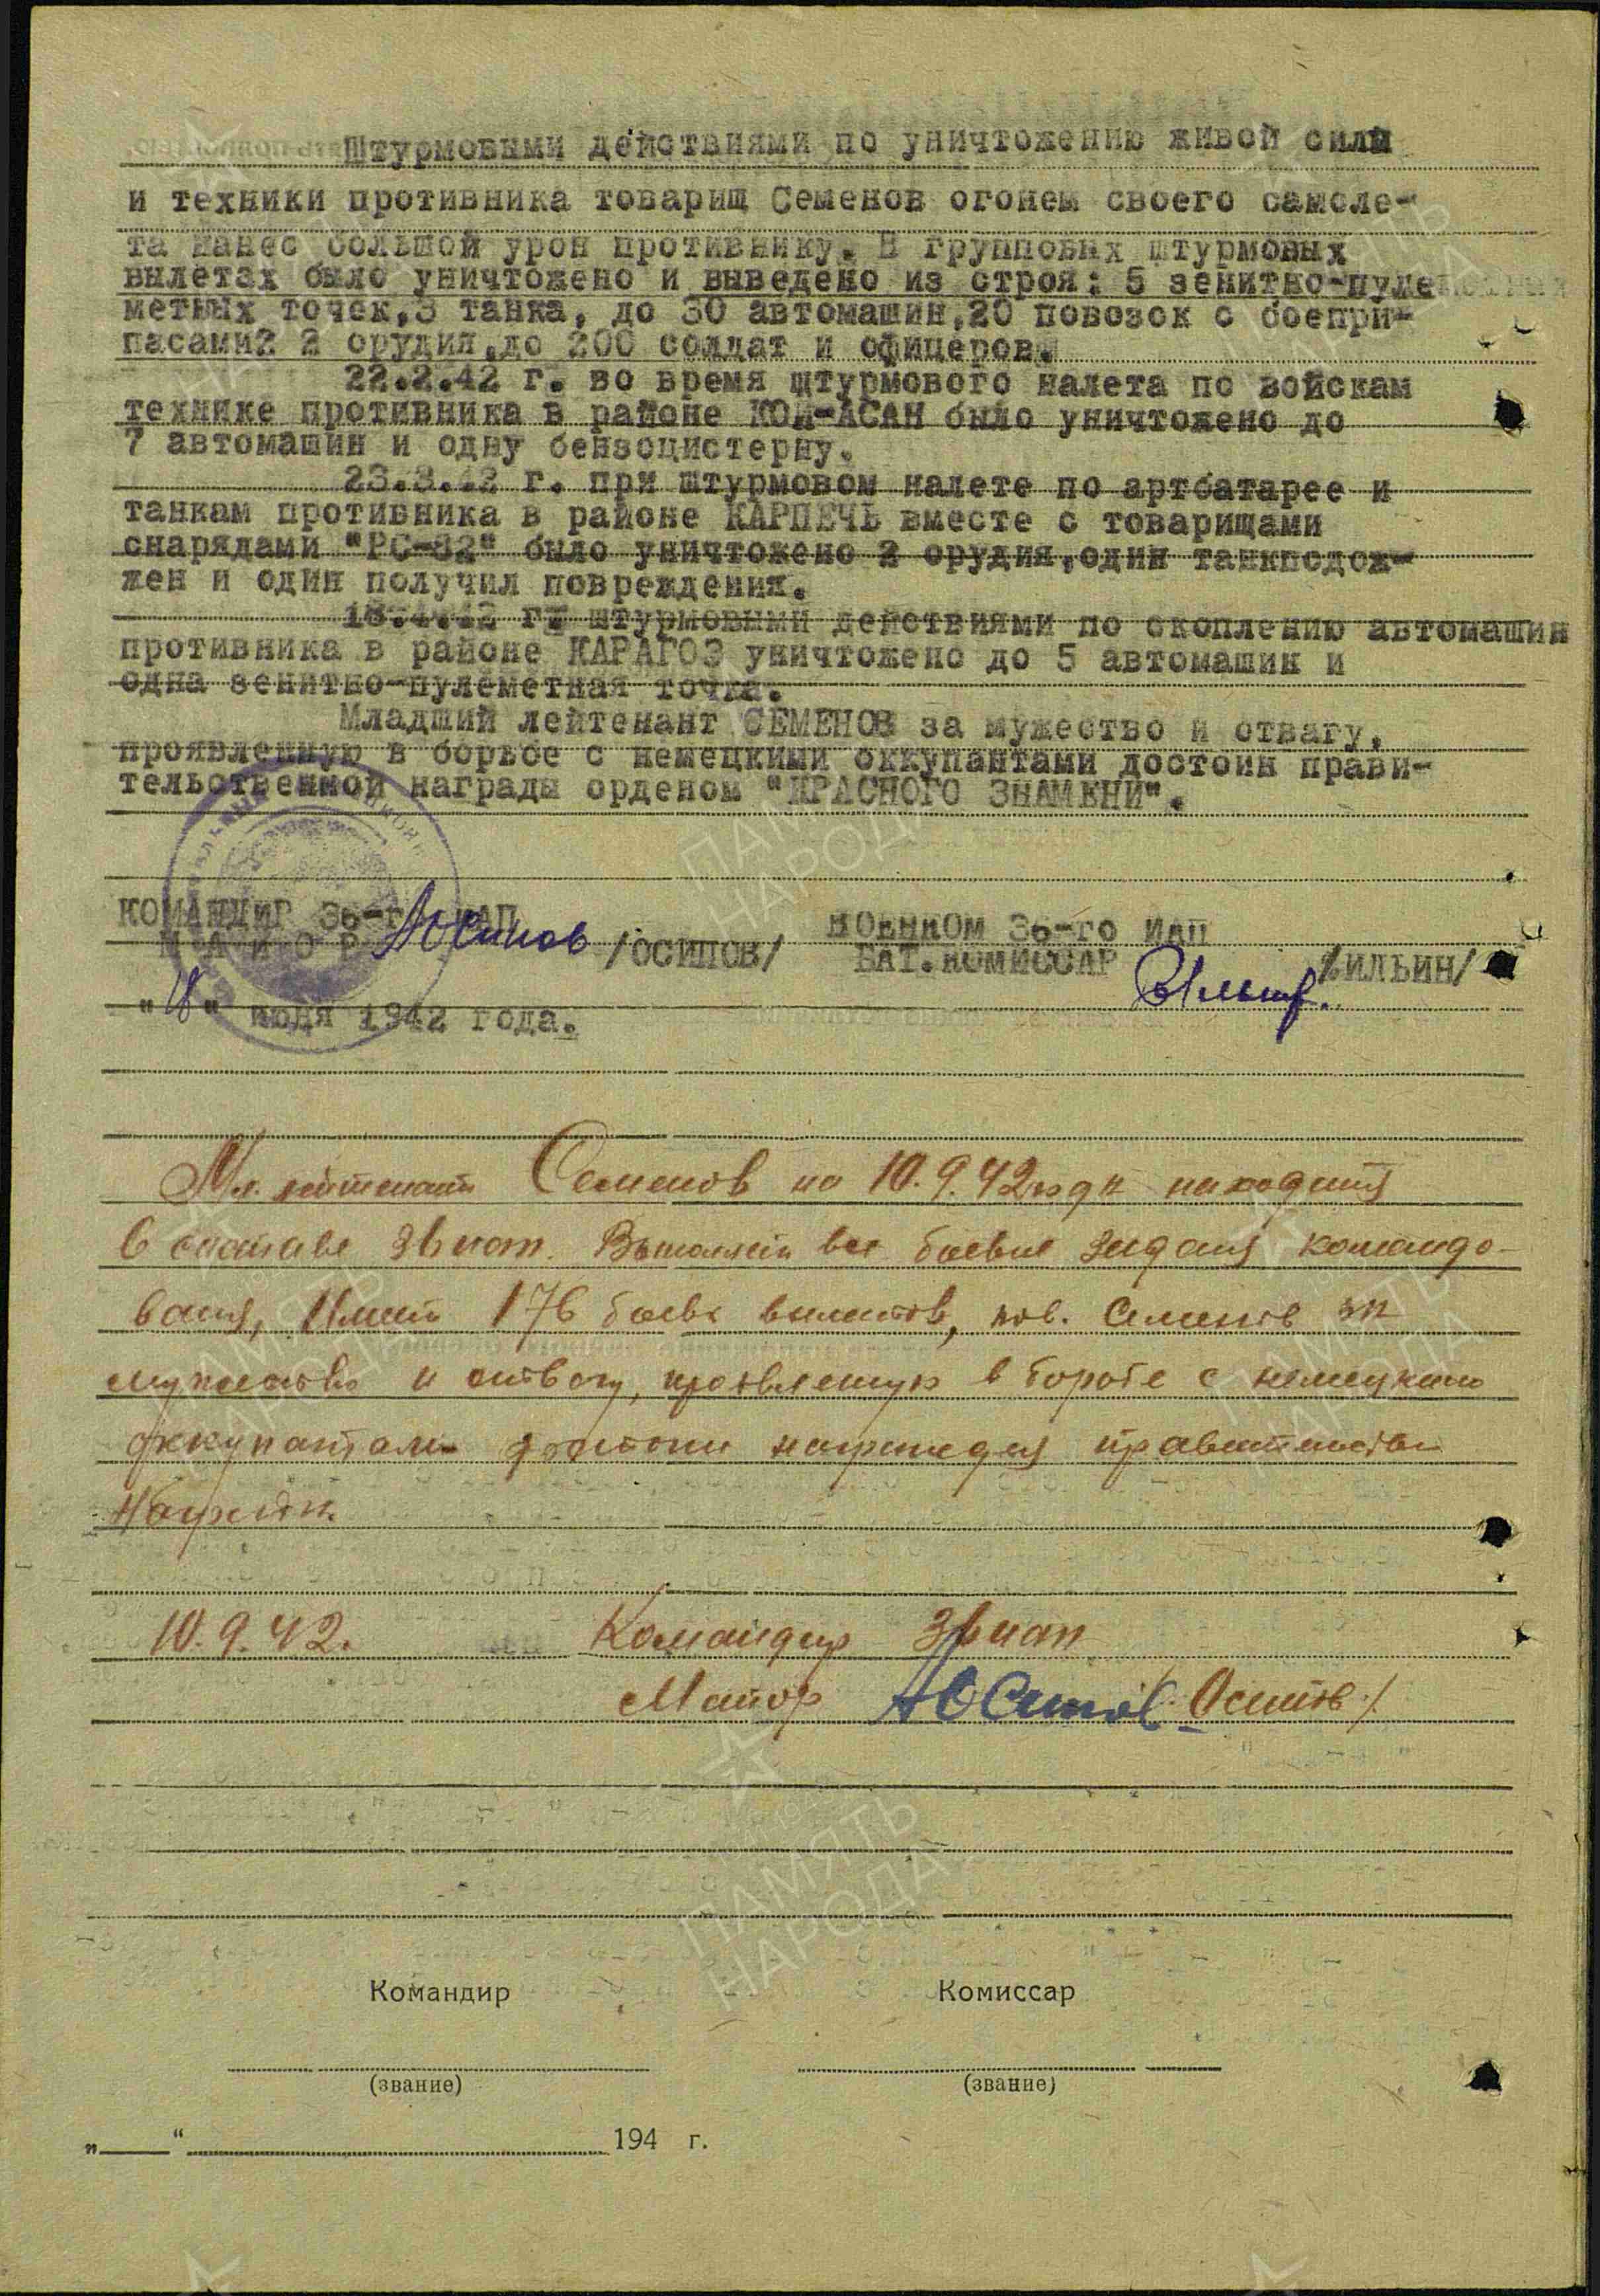 Штурмовыми действиями по уничтожению живой силы
и техники противника товарищ Семенов огонем своего самоле-
та нанес большой урон противнику. В групповых штурмовых
вылетах было уничтожено и выведено из строя: 5 зенитно-пуле
метных точек,3 танка, до 30 автомашин,20 повозок с боепри-
пасами2 2 орудия,до 200 солдат и офицеров.
22.2.42 г. во время штурмового налета по войскам
технике противника в районе КОЙ-АСАН было уничтожено до
7 автомашин и одну бензоцистерну.
23.3.42 г. при штурмовом налете по артбатарее и
танкам противника в районе КАРПЕЧЬ вместе с товарищами
снарядами "РС-82" было уничтожено 2 орудия,один танкподож-
жен и один получил повреждения.
18.4.42 г. штурмовыми действиями по скоплению автомашин
противника в районе КАРАГОЗ уничтожено до 5 автомашин и
одна зенитно-пулеметная точка.
Младший лейтенант СЕМЕНОВ за мужество и отвагу,
проявленную в борьбе с немецкими оккупантами достоин прави-
тельственной награды орденом "КРАСНОГО ЗНАМЕНИ".
КОМАНДИР 36-го ИАП ВОЕНКОМ 36-го ИАП
МАЙОР Осипов /ОСИПОВ/ БАТ.КОМИССАР Ильин /ИЛЬИН/
"18" июля 1942 года.
Мл. лейтенант Семенов на 10.9.42 года находится
в составе 36 иап. Выполняет все боевые задания командо-
вания, Имеет 176 боевых вылетов, тов. Семенов за
мужество и отвагу, проявленную в борьбе с немецкими
оккупантами достоин награждения правительствен
наградой.
10.9.42. Командир 36 иап
Майор Осипов /Осипов/.
Командир Комиссар
(звание) (звание)
„ “ 194 г.
ПАМЯТЬ
НАРОДА